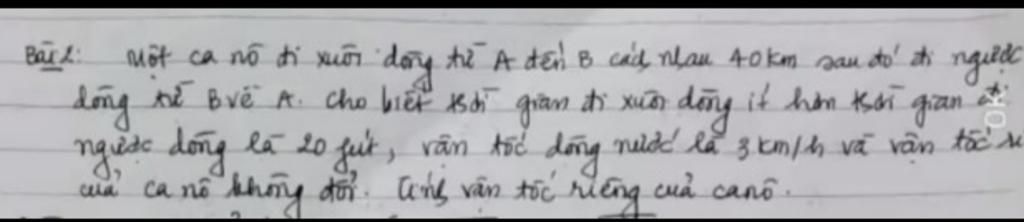 Bài 2: Một ca nô đi xuôi dòng từ A đến B cách nhau 40km sau đó đi ngược
dòng từ B về A. Cho biết thời gian đi xuôi dòng ít hơn thời gian đi
ngược dòng là 20 phút, vận tốc dòng nước là 3km/h và vận tốc
của ca nô không đổi. Tính vận tốc riêng của canô.